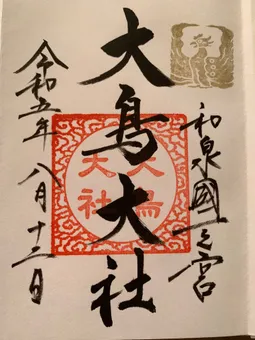 和泉國一之宮
大鳥大社
大鳥
大社
令和五年八月十三日